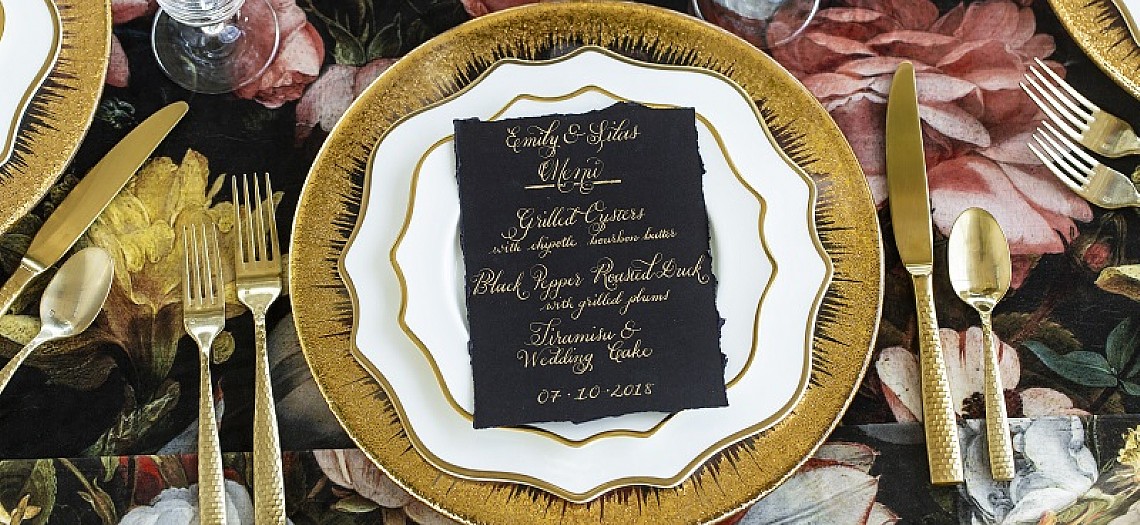 Emily & Silas
Menu
Grilled Oysters
with chipotle bourbon butter
Black Pepper Roasted Duck
with grilled plums
Tiramisu &
Wedding Cake
07·10·2018